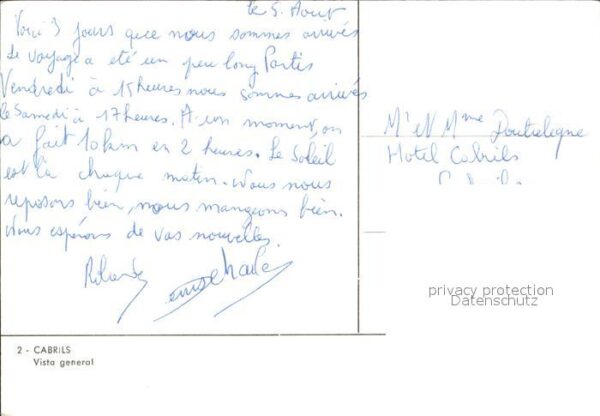 le 5. Août
Voici 3 jours que nous sommes arrivés
le voyage a été un peu long Partis
Vendredi à 15 heures nous sommes arrivés
le Samedi à 17 heures. A un moment, on
a fait 10 km en 2 heures. Le Soleil
est là chaque matin. Nous nous
reposons bien, nous mangeons bien.
Nous espérons de vos nouvelles.
Mr et Mme
Hotel Cabrils
privacy protection
Datenschutz
2 - CABRILS
Vista general